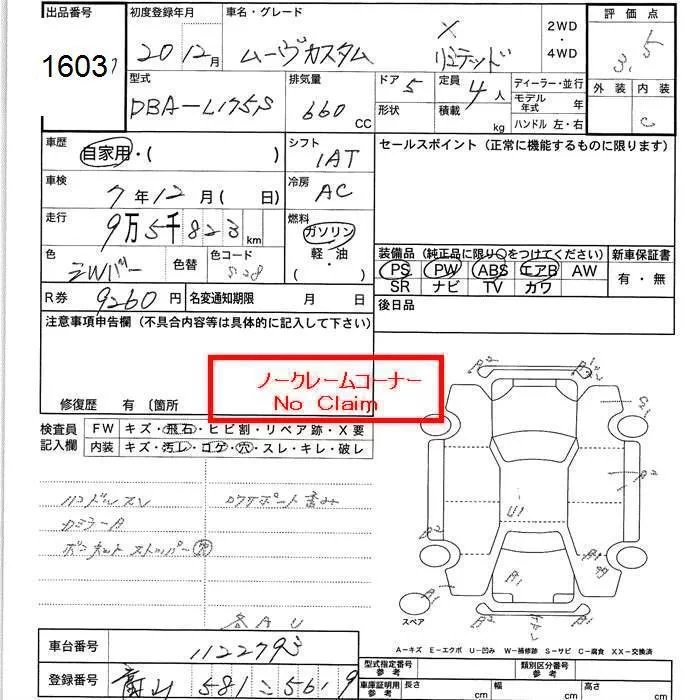 出品番号
1603
初度登録年月
20 12月
車名・グレード
ムーヴカスタム X リミテッド
2WD
・
4WD
評価点
3.5
外装 内装
C
型式
DBA-L175S
排気量
660 CC
ドア
5
形状
定員
4人
積載
kg
ディーラー・並行
モデル年式 年
ハンドル 左・右
車歴
自家用・( )
シフト
IAT
セールスポイント (正常に機能するものに限ります)
車検
7年12月( 日)
冷房
AC
走行
9万5千823km
燃料
ガソリン
軽・油
( )
色
シルバー
色替
色コード
S28
装備品 (純正品に限り○をつけてください)
PS PW ABS エアB AW
SR ナビ TV カワ
新車保証書
有・無
R券 9260円
名変通知期限 月 日
後日品
注意事項申告欄 (不具合内容等は具体的に記入して下さい)
ノークレームコーナー
No Claim
修復歴 有 〔箇所
検査員記入欄
FW キズ・飛石・ヒビ割・リペア跡・X要
内装 キズ・汚レ・コゲ・穴・スレ・キレ・破レ
ハンドルスレ
ロアサポート歪み
カミラーA
ボンネットストッパー欠
各AU
スペア
A-キズ E-エクボ U-凹み W-補修跡 S-サビ C-腐食 XX-交換済
車台番号
1122793
登録番号
富山 581 こ 5619
型式指定番号 参考
類別区分番号 参考
車庫証明用 参考
長さ cm
幅 cm
高さ cm